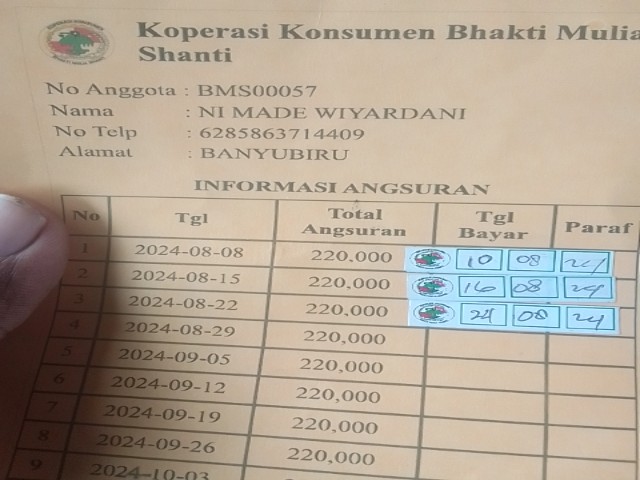 Koperasi Konsumen Bhakti Mulia
Shanti
No Anggota : BMS00057
Nama : NI MADE WIYARDANI
No Telp : 6285863714409
Alamat : BANYUBIRU
INFORMASI ANGSURAN
No Tgl Total Angsuran Tgl Bayar Paraf
1 2024-08-08 220,000 10 08 24
2 2024-08-15 220,000 16 08 24
3 2024-08-22 220,000 24 08 24
4 2024-08-29 220,000
5 2024-09-05 220,000
6 2024-09-12 220,000
7 2024-09-19 220,000
8 2024-09-26 220,000
9 2024-10-03